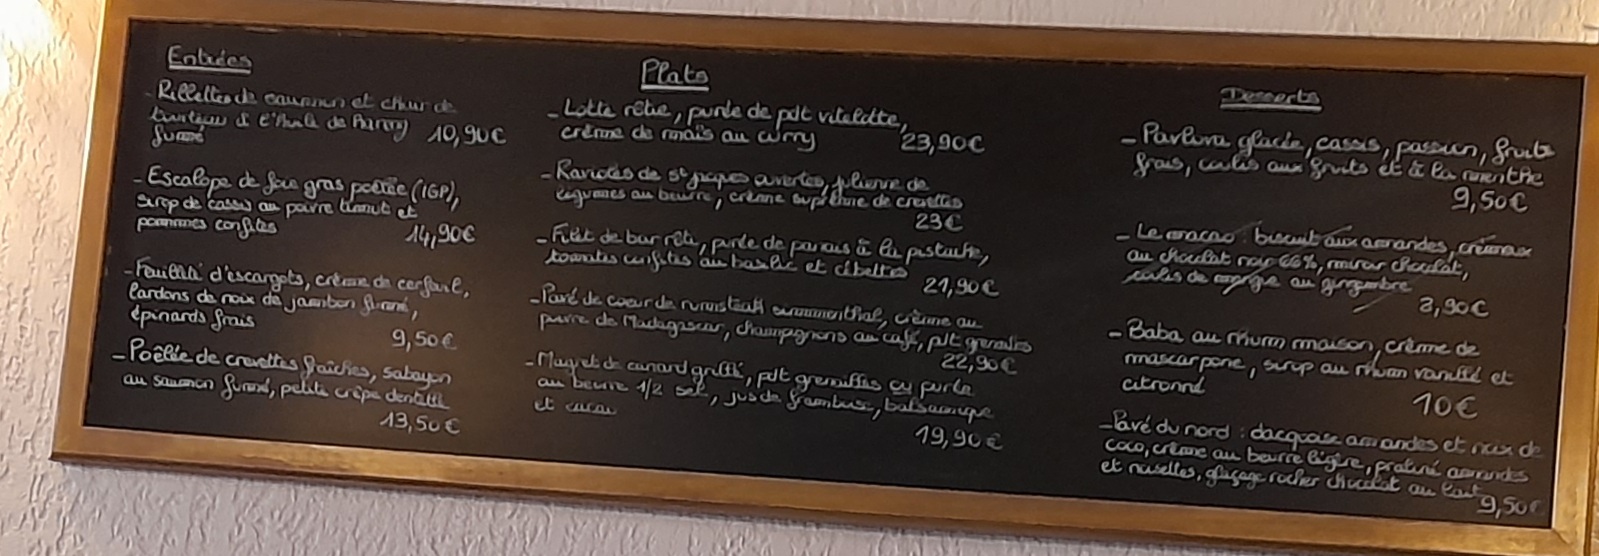 Entrées
- Rillettes de saumon et chair de
tourteau à l'huile de Harry 10,90€
fumé
- Escalope de foie gras poêlée (IGP),
sirop de cassis au poivre timut et
pommes confites 14,90€
- Feuilleté d'escargots, crème de cerfeuil,
lardons de noix de jambon fumé,
épinards frais
9,50€
- Poêlée de crevettes fraîches, sabayon
au saumon fumé, petite crêpe dentelle
13,50€
Plats
- Lotte rôtie, purée de pdt vitelotte,
crème de maïs au curry 23,90€
- Ravioles de St jaques ouvertes, julienne de
légumes au beurre, crème suprême de crevettes
23€
- Filet de bar rôti, purée de panais à la pistache,
tomates confites au basilic et ciboulette
21,90€
- Pavé de coeur de rumsteak simmenthal, crème au
poivre de Madagascar, champignons au café, pdt grenailles
22,90€
- Magret de canard grillé, pdt grenailles ou purée
au beurre 1/2 sel, jus de framboise, balsamique
et cacao
19,90€
Desserts
- Pavlova glacée, cassis, passion, fruits
frais, coulis aux fruits et à la menthe
9,50€
- Le macao : biscuit aux amandes, crémeux
au chocolat noir 66%, miroir chocolat,
coulis de mangue au gingembre
8,90€
- Baba au rhum maison, crème de
mascarpone, sirop au rhum vanillé et
citronné
10€
- Pavé du nord : dacquoise amandes et noix de
coco, crème au beurre légère, praliné amandes
et noisettes, glaçage rocher chocolat au lait
9,50€